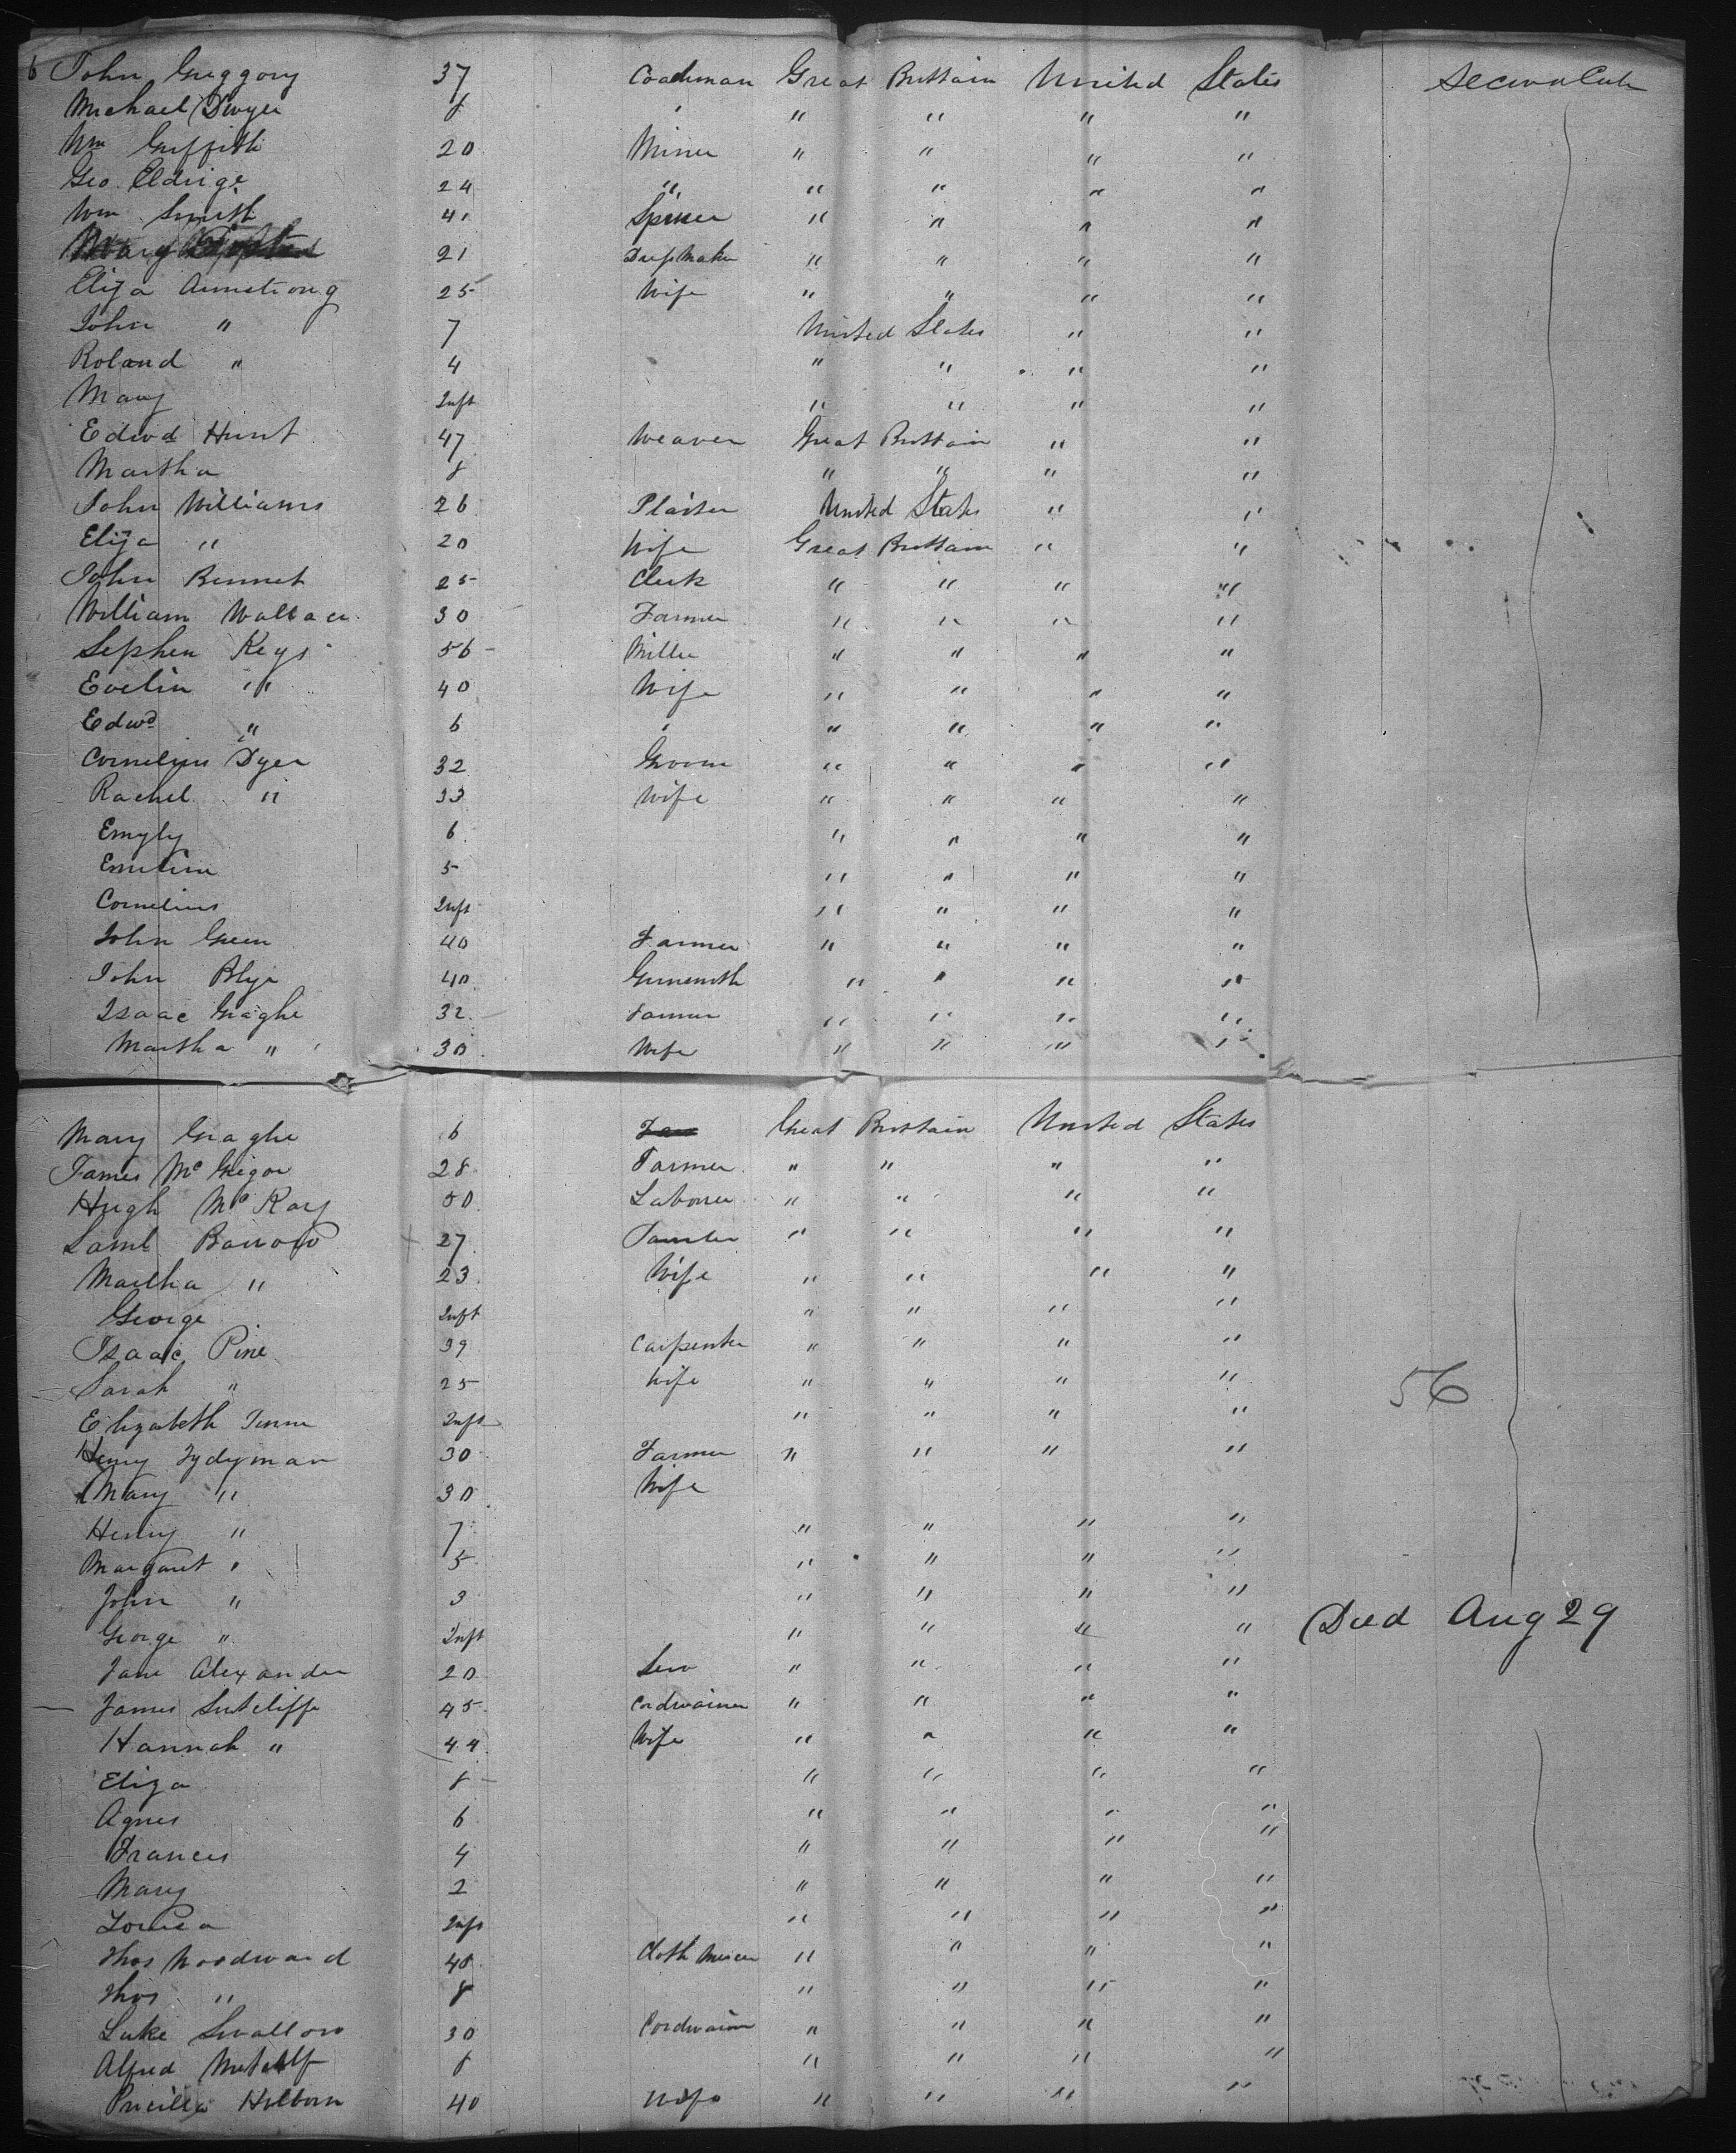 6 John Greggory 37 Coachman Great Brittain United States Second Cab
Michael Dwyer 8 " " " " "
Wm Griffith 20 Miner " " " "
Geo. Eldrige 24 " " " " "
Wm Smith 41 Spiner " " " "
Mary 21 Dressmaker " " " "
Eliza Armstrong 25 Wife " " " "
John " 7 United States " "
Roland " 4 " " " "
Mary Inft " " " "
Edwd Hunt 47 Weaver Great Brittain " "
Martha 8 " " " "
John Williams 26 Plaister United States " "
Eliza " 20 Wife Great Brittain " "
John Bennet 25 Clerk " " " "
William Wallace 30 Farmer " " " "
Sephen Keys 56 Miller " " " "
Evelin " 40 Wife " " " "
Edwd " 6 " " " " "
Cornelius Dyer 32 Groom " " " "
Rachel " 33 Wife " " " "
Emyly 6 " " " "
Emelina 5 " " " "
Cornelius Inft " " " "
John Green 40 Farmer " " " "
John Blye 40 Gunsmith " " " "
Isaac Graghe 32 Farmer " " " "
Martha " 30 Wife " " " "
Mary Graghe 6 Great Brittain United States
James McGregor 28 Farmer " " " "
Hugh McKay 50 Labourer " " " "
Saml Barrow 27 " " " "
Martha " 23 Wife " " " "
George Inft " " " "
Isaac Pine 39 Carpenter " " " "
Sarah " 25 Wife " " " " 56
Elizabeth Inft " " " "
Henry Tydyman 30 Farmer " " " "
Mary " 30 Wife
Henry " 7 " " " "
Margaret " 5 " " " "
John " 3 " " " "
George " Inft " " " " Died Aug 29
Jane Alexander 20 Serv " " " "
James Sutcliffe 45 Cordwainer " " " "
Hannah " 44 Wife " " " "
Eliza 8 " " " "
Agnes 6 " " " "
Frances 4 " " " "
Mary 2 " " " "
Louisa Inft " " " "
Thos Woodward 48 Cloth Mercer " " " "
Thos " 8 " " " "
Luke Swallow 30 Cordwainer " " " "
Alfred Metcalf 8 " " " "
Pricilla Holborn 40 Wife " " " "